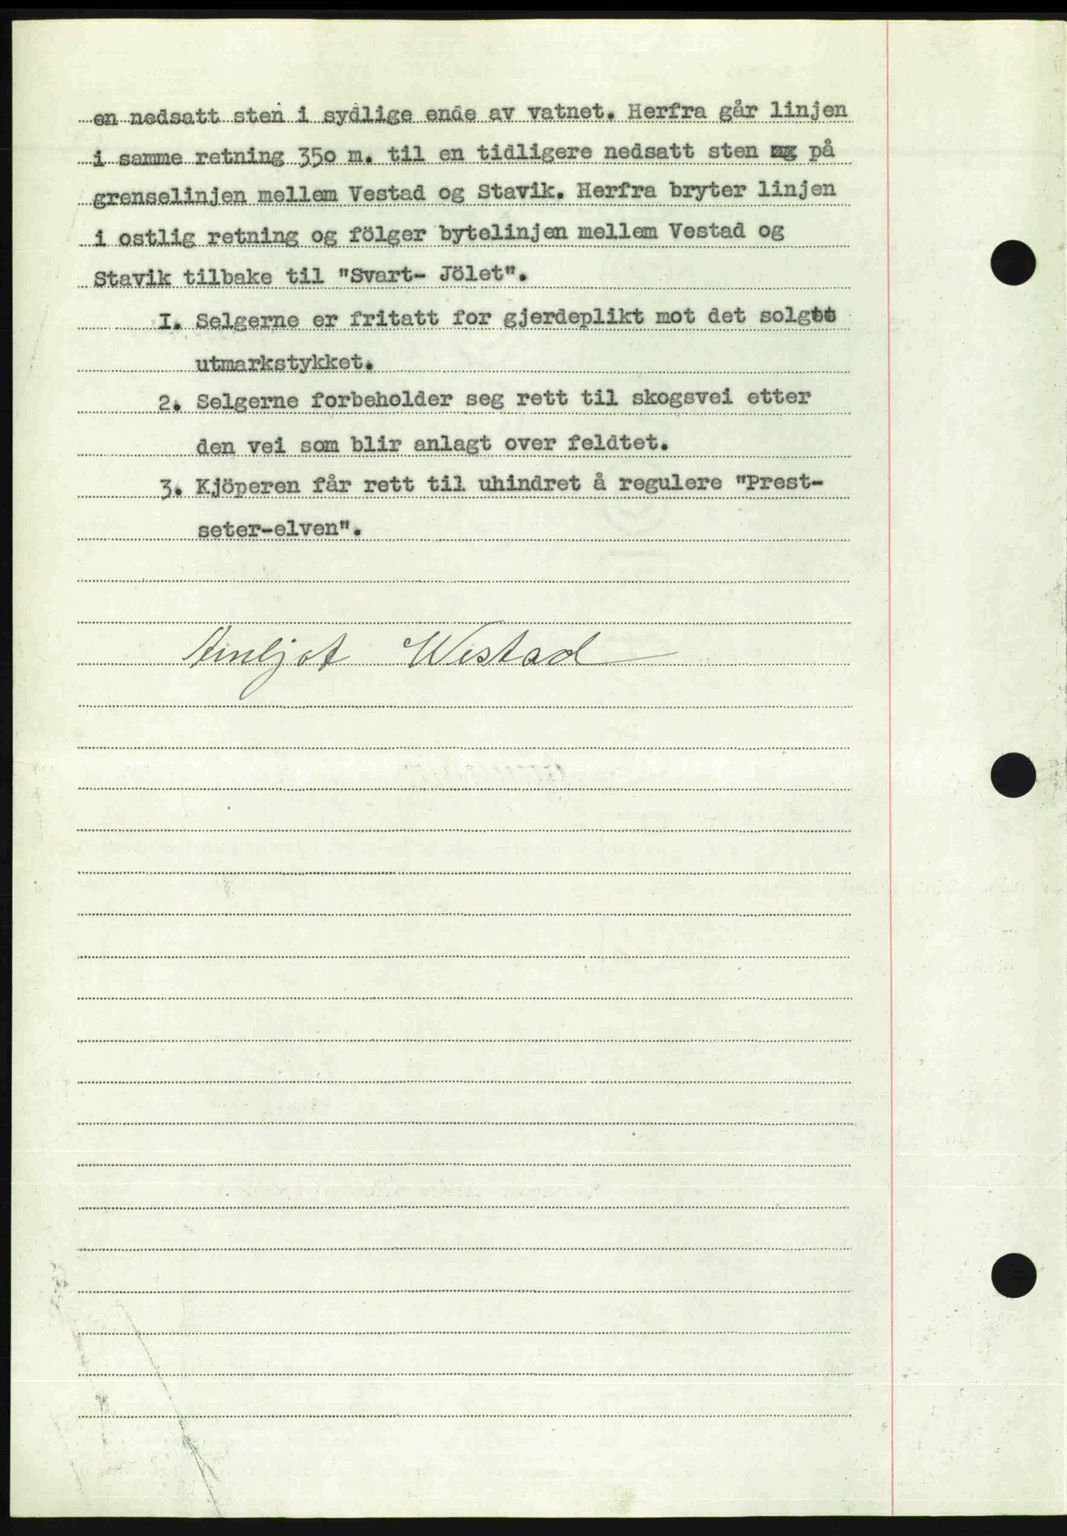 en nedsatt sten i sydlige ende av vatnet. Herfra går linjen
i samme retning 350 m. til en tidligere nedsatt sten på
grenselinjen mellem Vestad og Stavik. Herfra bryter linjen
i ostlig retning og fölger bytelinjen mellem Vestad og
Stavik tilbake til "Svart- Jölet".
I. Selgerne er fritatt for gjerdeplikt mot det solgte
utmarkstykket.
2. Selgerne forbeholder seg rett til skogsvei etter
den vei som blir anlagt over feldtet.
3. Kjöperen får rett til uhindret å regulere "Prest-
seter-elven".
Westad